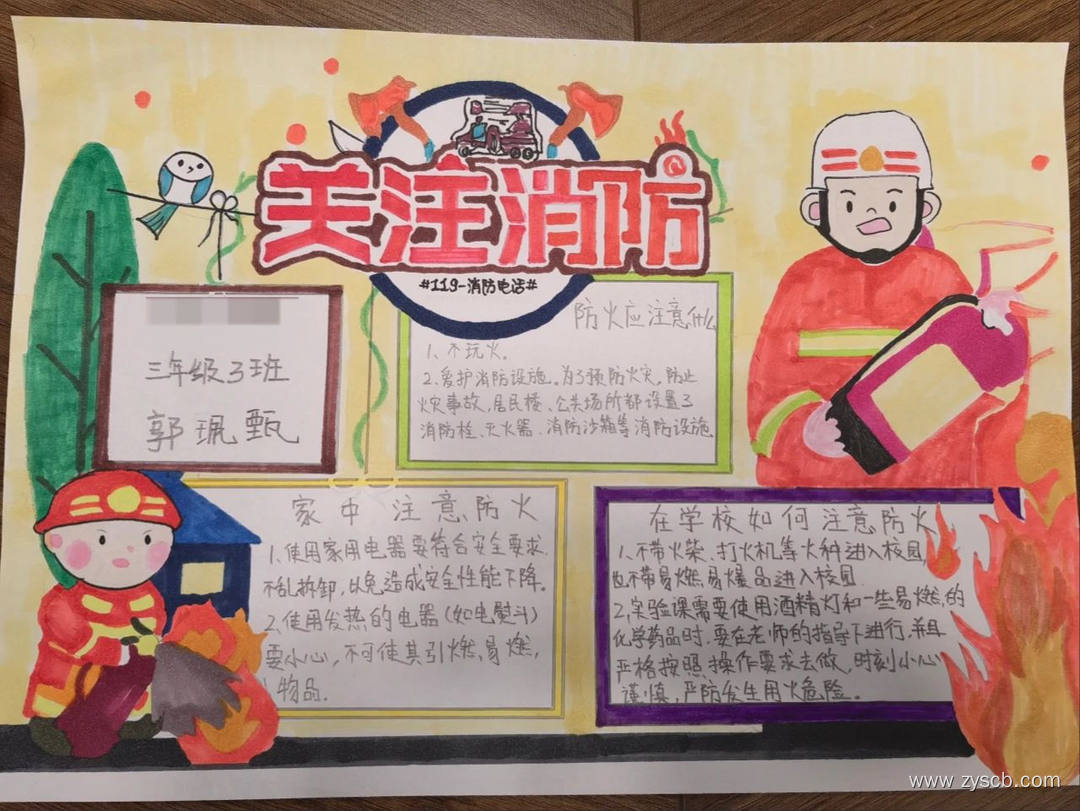 关注消防
#119-消防电话#
三年级3班
郭珮甄
防火应注意什么
1、不玩火。
2、爱护消防设施。为了预防火灾,防止
火灾事故,居民楼、公共场所都设置了
消防栓、灭火器、消防沙箱等消防设施
家中注意防火
1、使用家用电器要符合安全要求,
不乱拆卸,以免造成安全性能下降。
2、使用发热的电器(如电熨斗)
要小心,不可使其引燃、易燃,
物品。
在学校如何注意防火
1、不带火柴、打火机等火种进入校园,
也不带易燃、易爆品进入校园
2、实验课需要使用酒精灯和一些易燃的
化学药品时,要在老师的指导下进行,并且
严格按照操作要求去做,时刻小心
谨慎,严防发生用火危险。
www.zyscb.com